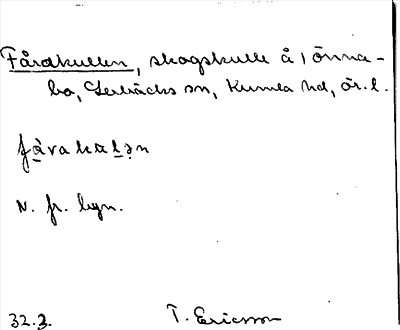 Fårdkullen, skogskulle å Önna-
bo, Lerbäcks sn, Kumla hd, Ör. l.
fåvakulən
N. fr. byn.
32.3. T. Ericsson